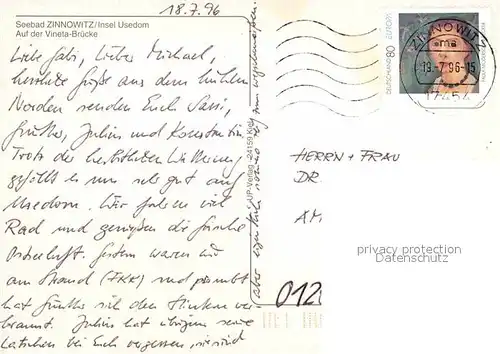 18.7.96
Seebad ZINNOWITZ/Insel Usedom
Auf der Vineta-Brücke
Liebe Gabi, Lieber Michael,
herzliche Grüße aus dem kühlen
Norden senden Euch Susi,
Julius und Konstantin
Trotz der herbstlichen Witterung
gefällt es uns sehr gut auf
Usedom. Wir fahren viel
Rad und genießen die frische
Ostseeluft. Gestern waren wir
am Strand (FKK) und prompt
hat sich den Hintern ver-
brannt. Julius hat übrigens seine
Latschen bei Euch vergessen, sie sind
aber eigentlich sowieso reif zum wegschmeißen.
UP-Verlag · 24159 Kiel
DEUTSCHLAND 80 EUROPA
ZINNOWITZ
19.-7.96-15
17454
HERRN + FRAU
DR.
AM
privacy protection
Datenschutz
012